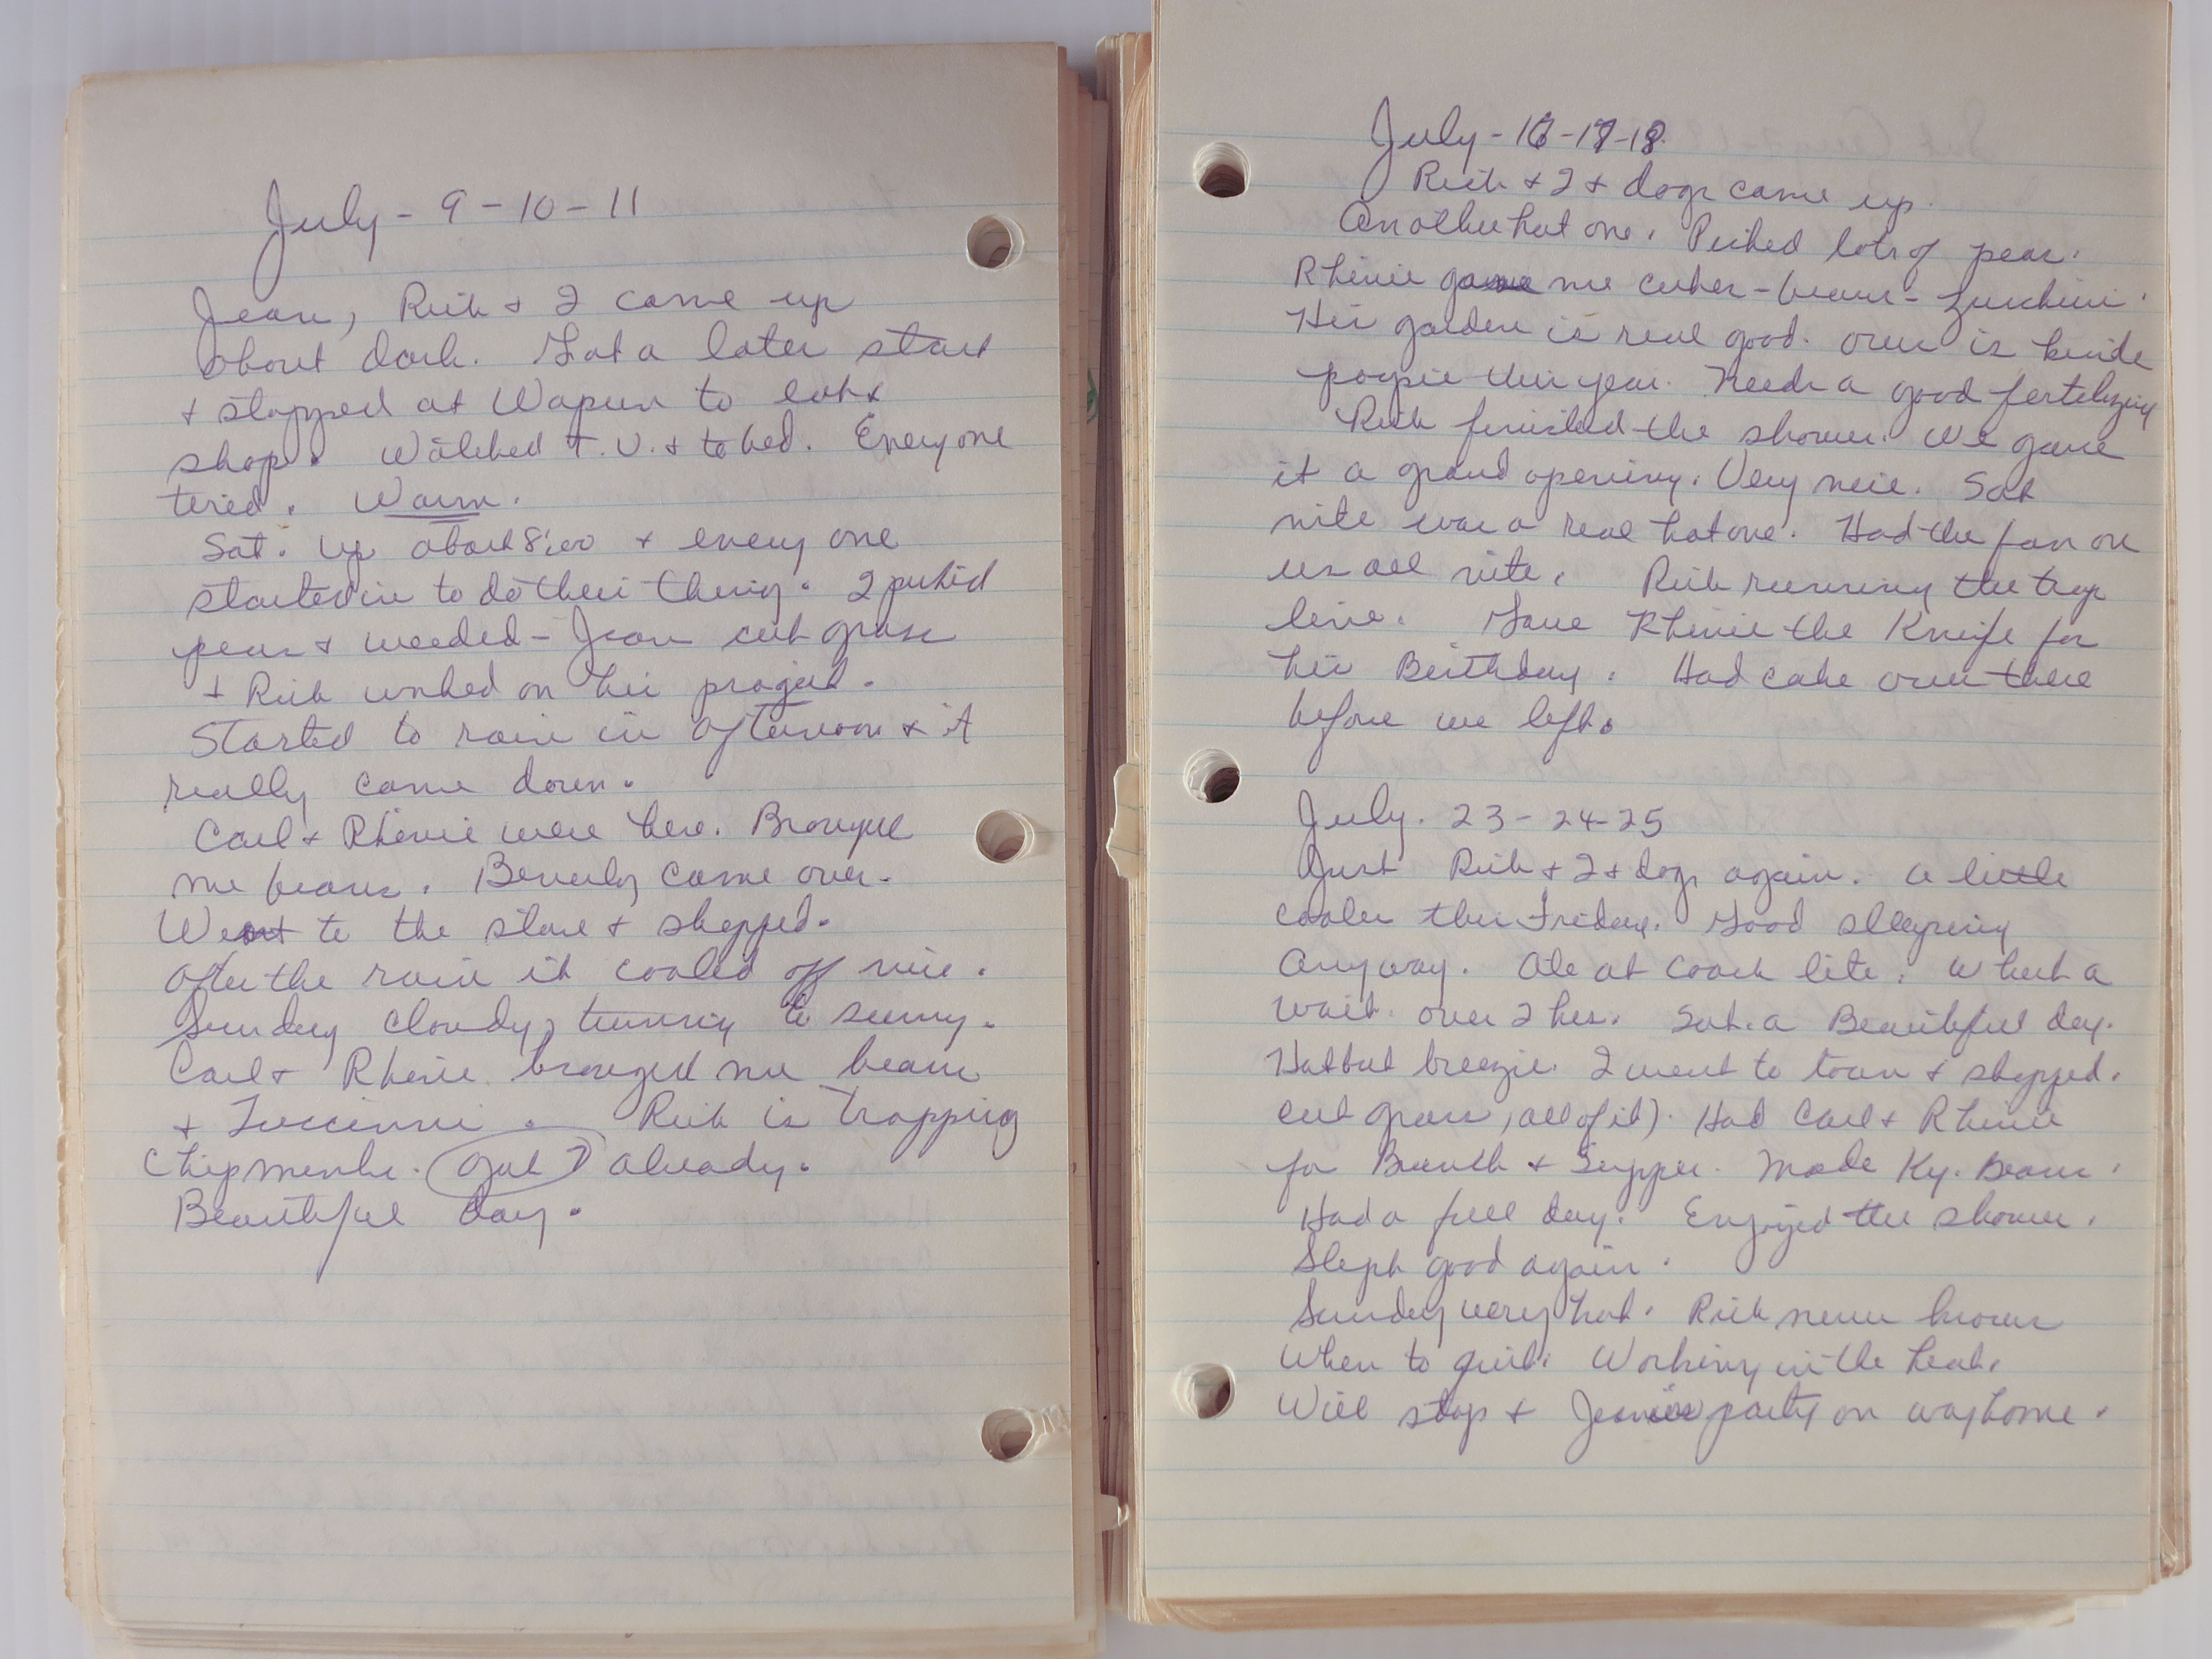 July - 9 - 10 - 11
Jean, Rich + I came up
about dark. Got a later start
+ stopped at Waupun to eat +
shop. Watched T.V. + to bed. Everyone
tired. Warm.
Sat. Up about 8:00 + every one
started in to do their thing. I picked
peas + weeded - Jean cut grass
+ Rich worked on his project.
Started to rain in afternoon + it
really came down.
Carl + Rhenie were here. Brought
me beans. Beverly came over.
Went to the store + shopped.
After the rain it cooled off nice.
Sunday cloudy, turning to sunny.
Carl + Rhenie brought me beans
+ Zuccinni. Rich is trapping
Chipmenks. Got 7 already.
Beautiful day.
July - 16 - 17 - 18.
Rich + I + dogs came up.
Another hot one. Picked lots of peas.
Rhenie gave me cukes - beans - zucchini.
His garden is real good. Ours is kinda
poopie this year. Needs a good fertilizing
Rich finished the shower. We gave
it a grand opening. Very nice. Sat
nite was a real hot one. Had the fan on
us all nite. Rich running the trap
line. Gave Rhenie the Knife for
his Birthday. Had cake over there
before we left.
July. 23 - 24 - 25
Just Rich + I + dogs again. A little
cooler this Friday. Good sleeping
Anyway. Ate at Coach lite. What a
wait. over 2 hrs. Sat. a Beautiful day.
Hot but breezie. I went to town + shopped.
cut grass, all of it). Had Carl + Rhenie
for Brunch + Supper. Made Ky. Beans.
Had a full day. Enjoyed the shower.
Slept good again.
Sunday very hot. Rich never knows
When to quit. Working in the heat.
Will stop + Jeanies party on way home.